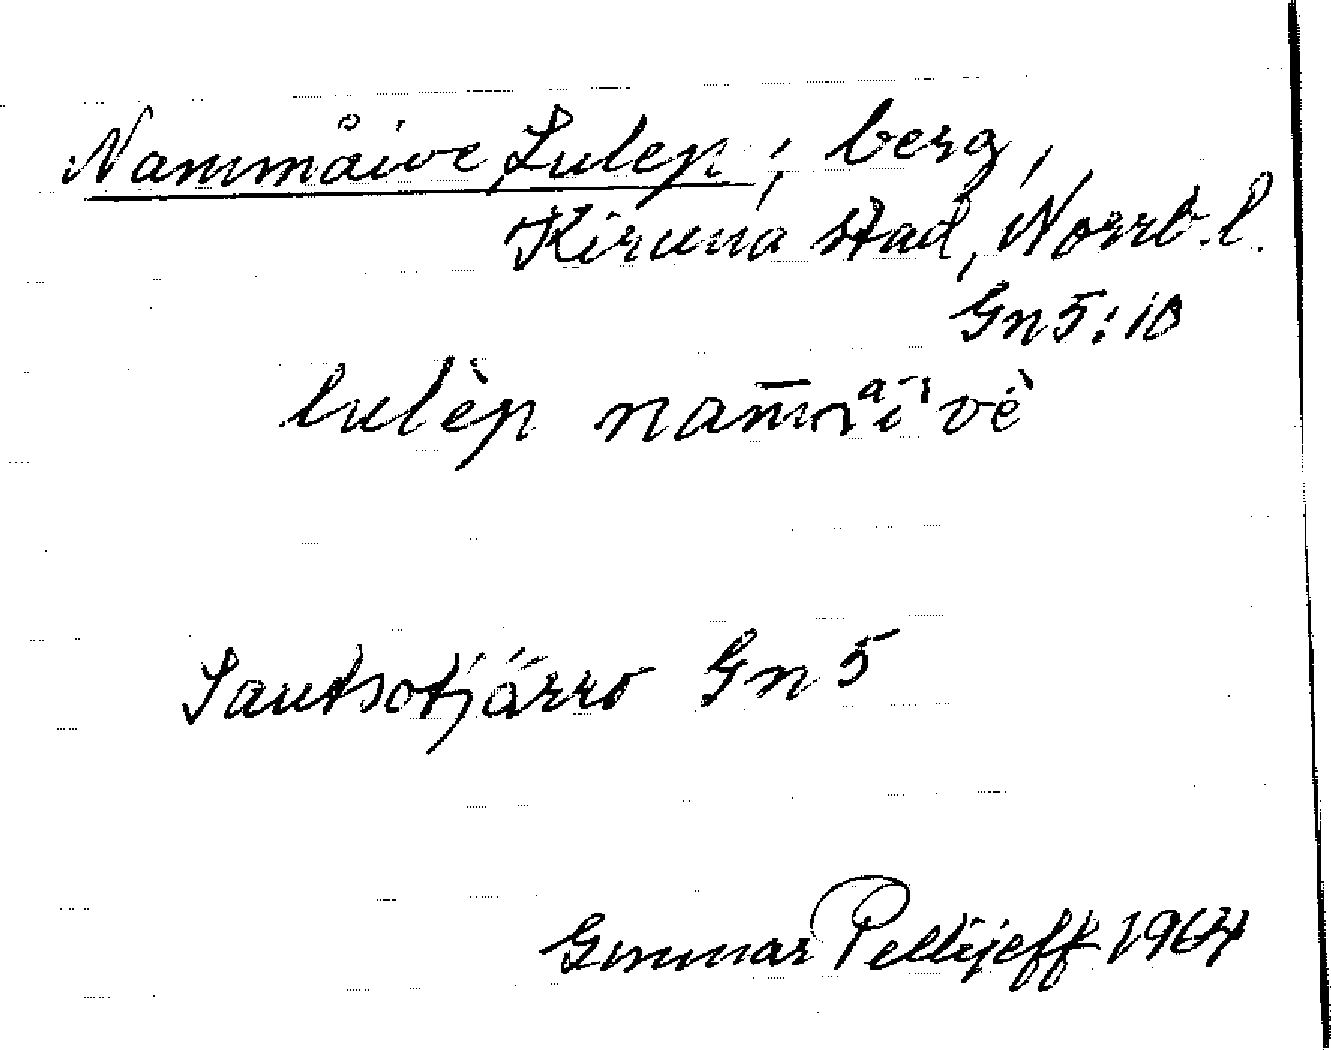 Nammåive, Lulep; berg,
Kiruna stad, Norrb.l.
Gn5:10
lulèp
Sautsotjårro Gn 5
Gunnar Pellijeff 1964